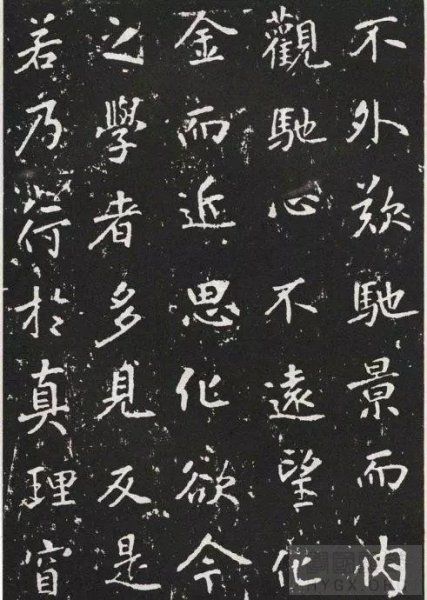 不外欵馳景而内
觀馳心不遠望化
金而近思化欲今
之學者多見反是
若乃苻於真理窅